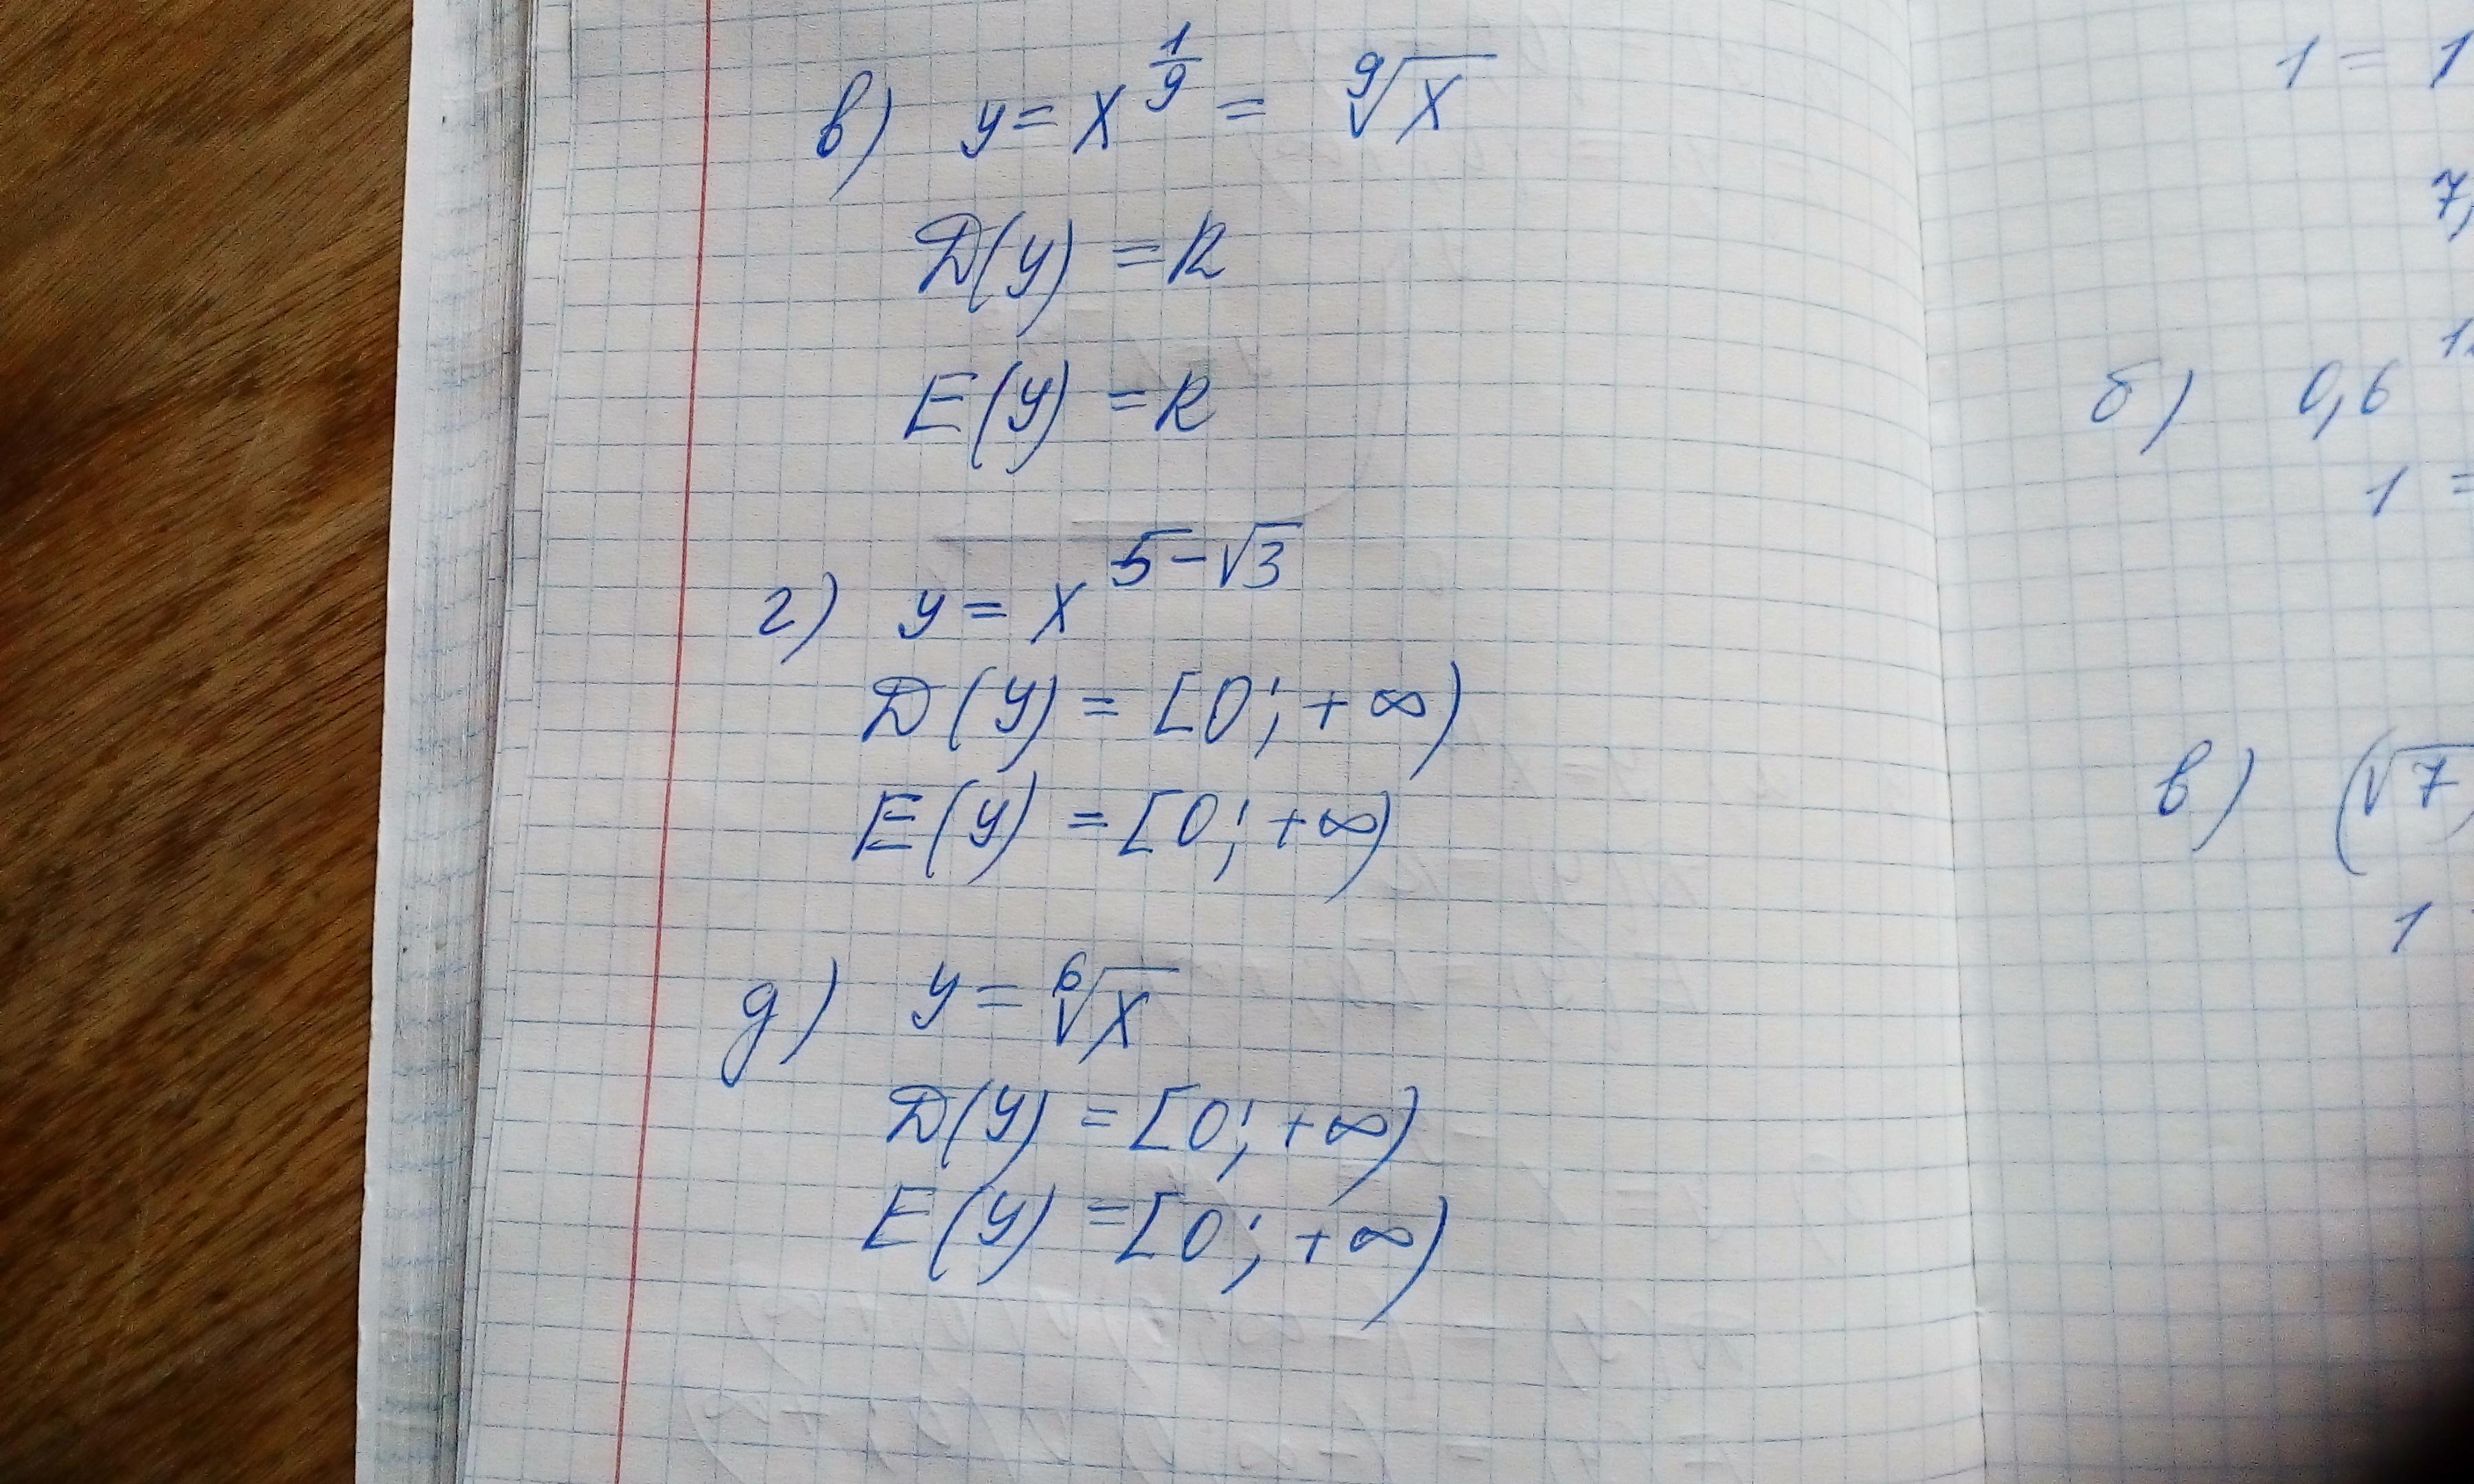 в) y = x^{1/9} = ⁹√x
D(y) = R
E(y) = R
г) y = x^{5-√3}
D(y) = [0; +∞)
E(y) = [0; +∞)
д) y = ⁶√x
D(y) = [0; +∞)
E(y) = [0; +∞)
1 = 1
7,
б) 0,6
1 =
в) (√7
1